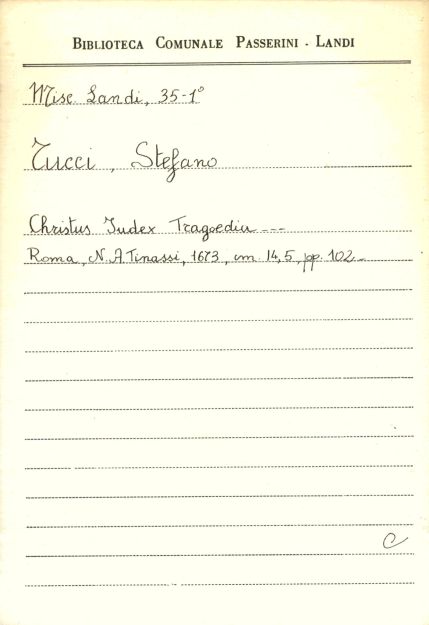 BIBLIOTECA COMUNALE PASSERINI - LANDI
Misc Landi, 35-1°
Tucci, Stefano
Christus Iudex Tragoediu ---
Roma, N. A. Tinassi, 1673, cm. 14,5, pp. 102 -
C